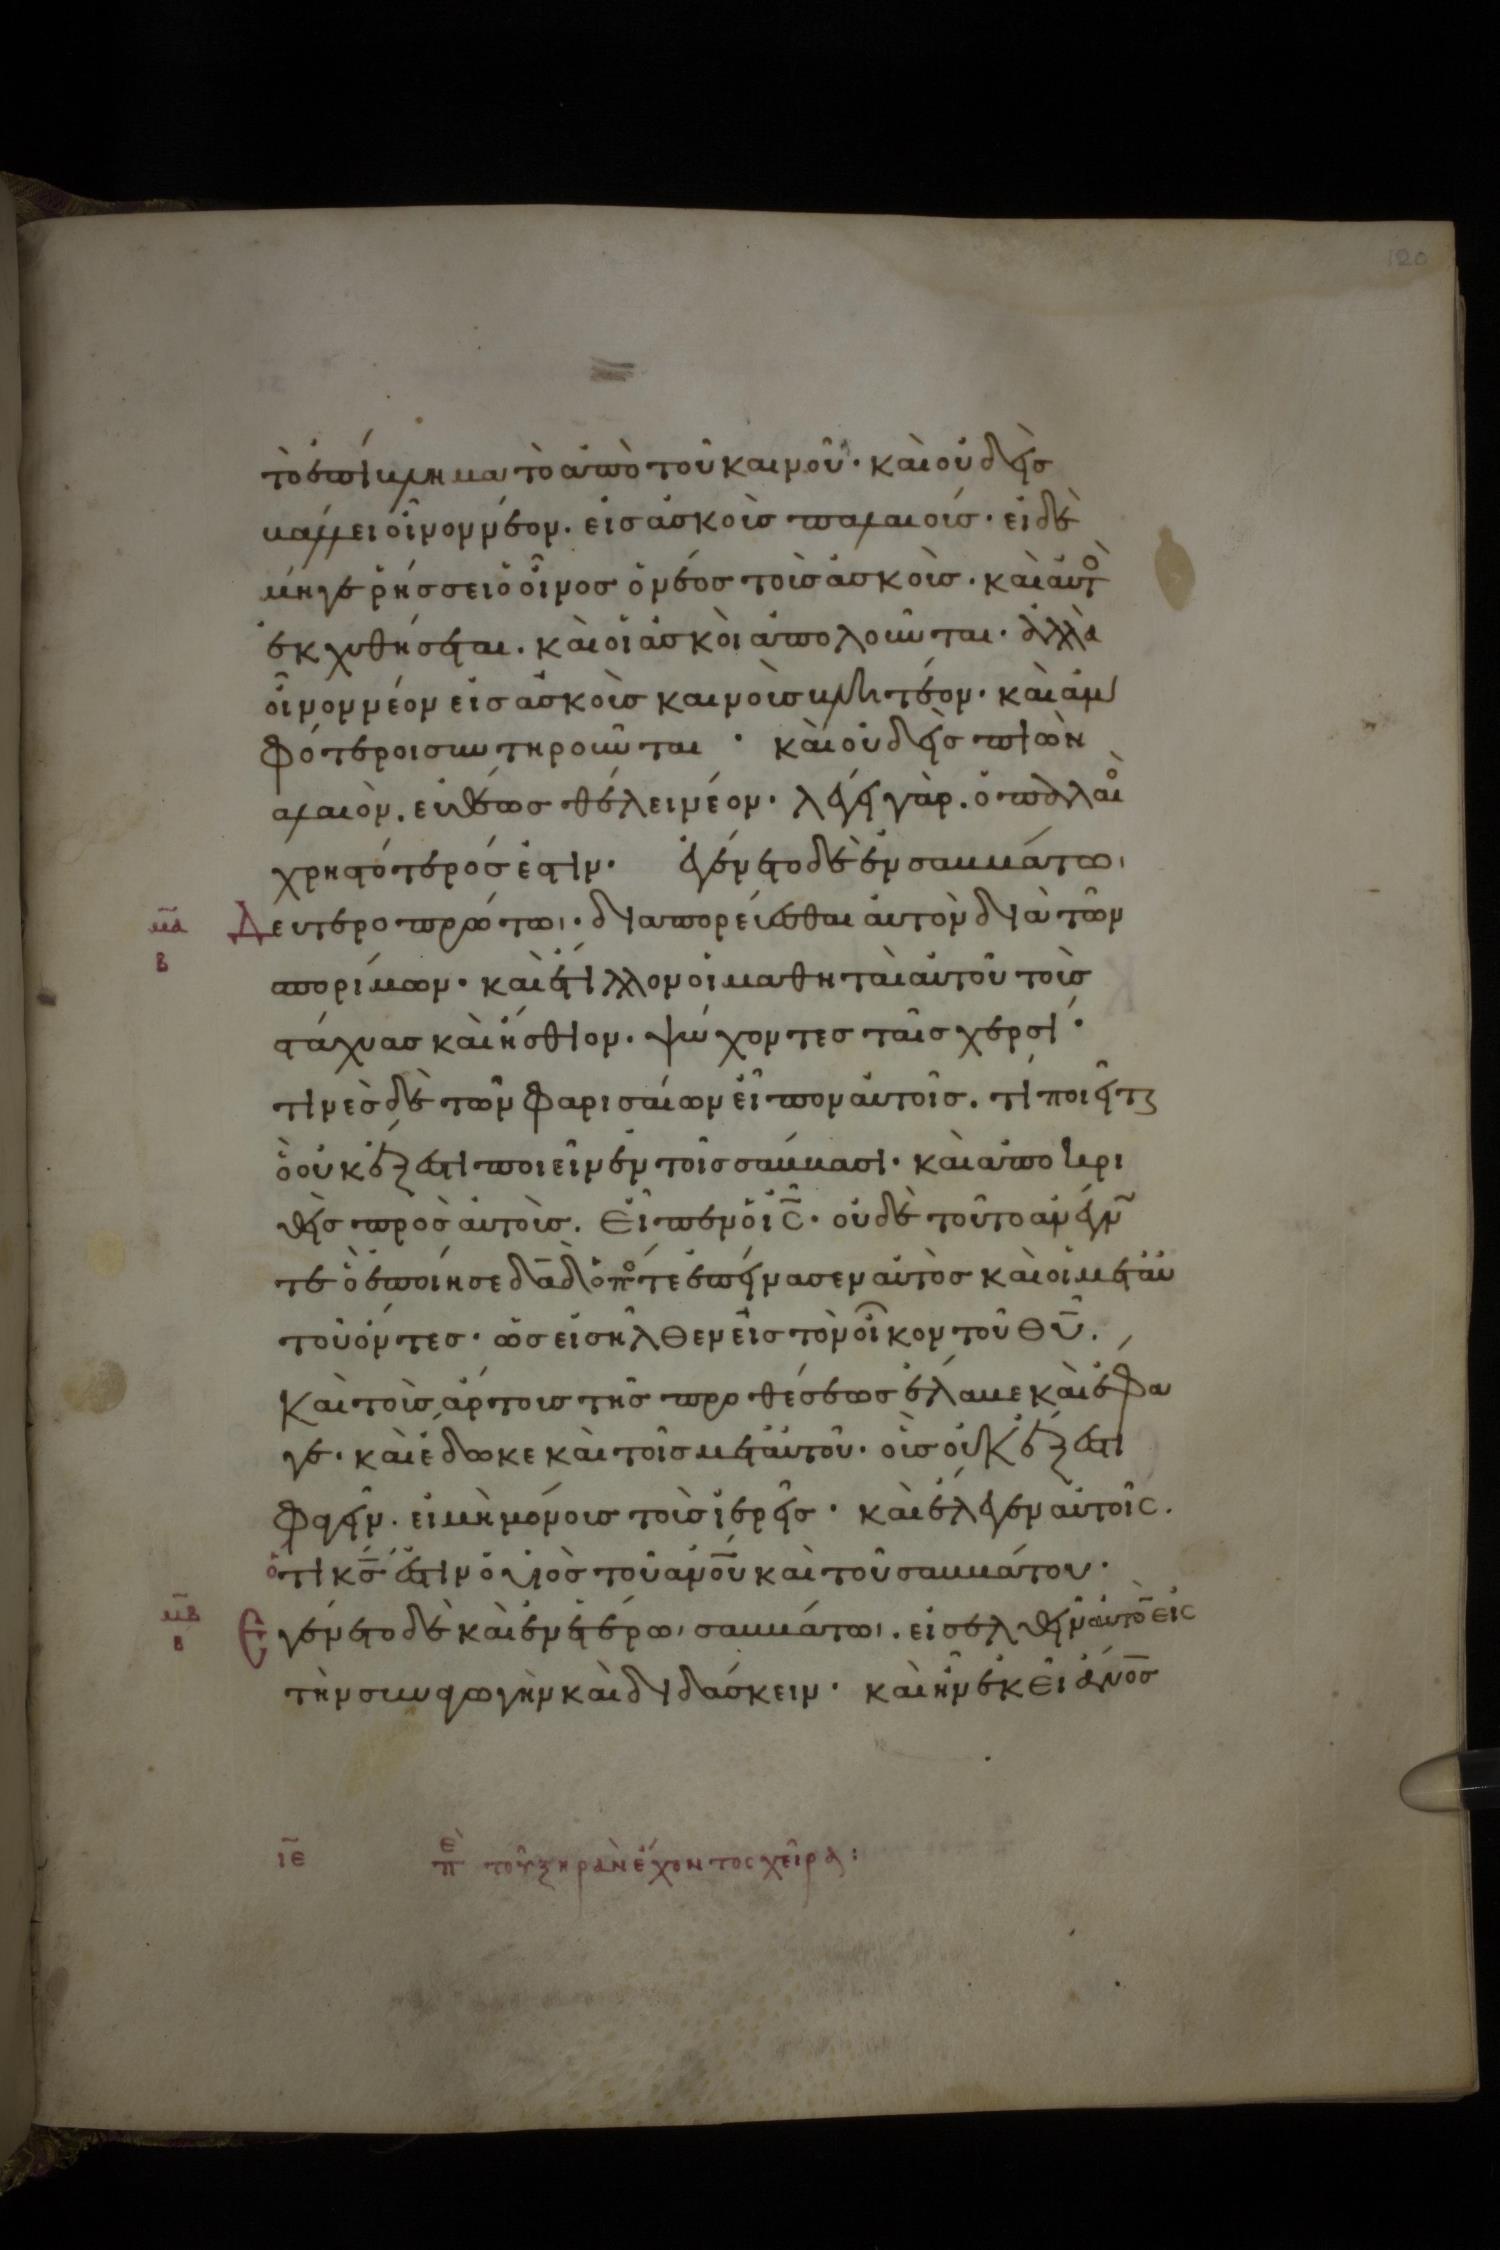 120
τὸ ἐπίβλημα τὸ ἀπὸ τοῦ καινοῦ· καὶ οὐδεὶς
βάλλει οἶνον νέον· εἰς ἀσκοὺς παλαιούς· εἰ δὲ
μήγε ῥήσσει ὁ οἶνος ὁ νέος τοὺς ἀσκοὺς· καὶ αὐτὸ
ἐκχυθήσεται. καὶ οἱ ἀσκοὶ ἀπολοῦνται· ἀλλὰ
οἶνον νέον εἰς ἀσκοὺς καινοὺς βλητέον· καὶ ἀμ
φότεροι συντηροῦνται · καὶ οὐδεὶς πιὼν
παλαιὸν. εὐθέως θέλει νέον· λέγει γὰρ. ὁ παλαιὸ
χρηστότερός ἐστιν· ἐγένετο δὲ ἐν σαββάτωι
μα Δευτεροπρώτωι· διαπορεύεσθαι αὐτὸν διὰ τῶν
β σπορίμων· καὶ ἔτιλλον οἱ μαθηταὶ αὐτοῦ τοὺς
στάχυας καὶ ἤσθιον· ψώχοντες ταῖς χερσί·
τινὲς δὲ τῶν φαρισαίων εἶπον αὐτοῖς. τί ποιεῖτε
ὃ οὐκ ἔξεστι ποιεῖν ἐν τοῖς σάββασι· καὶ ἀποκρι
θεὶς πρὸς αὐτοὺς. Εἶπεν ὁ ις̅· οὐδὲ τοῦτο ἀνέγνω
τε ὃ ἐποίησε δα̅δ ὁπότε ἐπείνασεν αὐτὸς καὶ οἱ μετ αὐ
τοῦ ὄντες· ὡς εἰσῆλθεν εἰς τὸν οἶκον τοῦ θυ̅.
Καὶ τοὺς ἄρτους τῆς προθέσεως ἔλαβε καὶ ἔφα
γε· καὶ ἔδωκε καὶ τοῖς μετ αὐτοῦ· οὓς οὐκ ἔξεστι
φαγεῖν. εἰ μὴ μόνους τοὺς ἱερεῖς· καὶ ἔλεγεν αὐτοῖς.
ὅτι κς̅ ἐστιν ὁ υἱὸς τοῦ ἀνο̅υ καὶ τοῦ σαββάτου·
μβ Εγένετο δὲ καὶ ἐν ἑτέρωι σαββάτωι. εἰσελθεῖν αὐτὸν εἰς
β τὴν συναγωγὴν καὶ διδάσκειν· καὶ ἦν ἐκεῖ ἄνο̅ς
ιε πε τοῦ ξηρὰν ἔχοντος χεῖρα: